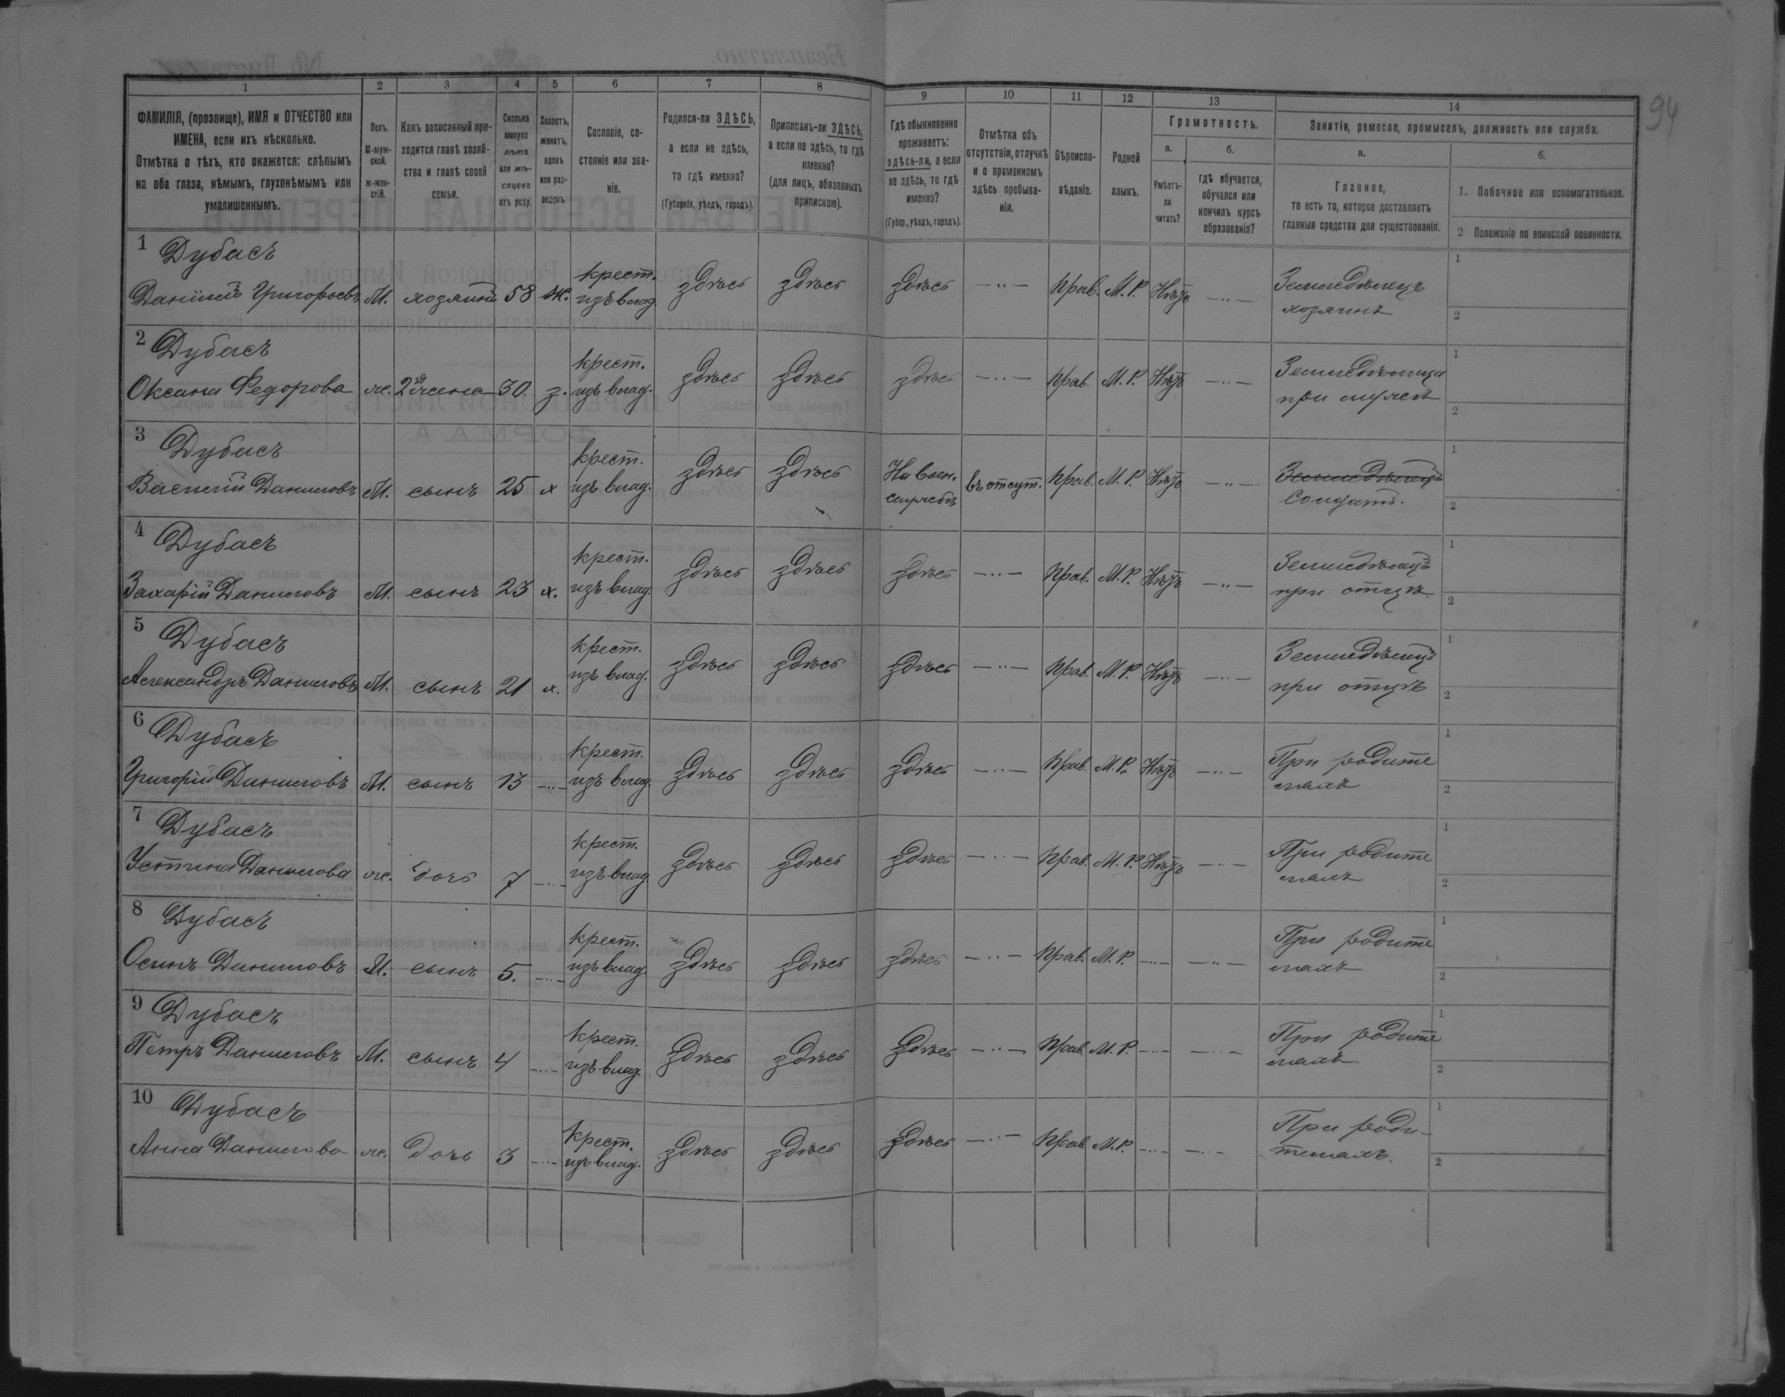 94
1 2 3 4 5 6 7 8 9 10 11 12 13 14
ФАМИЛІЯ, (прозвище), ИМЯ и ОТЧЕСТВО или
ИМЕНА, если ихъ нѣсколько.
Отмѣтка о тѣхъ, кто окажется: слѣпымъ
на оба глаза, нѣмымъ, глухонѣмымъ или
умалишеннымъ.
Полъ.
М-муж-
ской.
ж-жен-
скій.
Какъ записанный при-
ходится главѣ хозяй-
ства и главѣ своей
семьи.
Сколько
минуло
лѣтъ
или мѣ-
сяцевъ
отъ роду.
Холостъ,
женатъ,
вдовъ
или раз-
веденъ.
Сословіе, со-
стояніе или зва-
ніе.
Родился-ли ЗДѢСЬ,
а если не здѣсь,
то гдѣ именно?
(Губернія, уѣздъ, городъ).
Приписанъ-ли ЗДѢСЬ,
а если не здѣсь, то гдѣ
именно?
(для лицъ, обязанныхъ
припискою).
Гдѣ обыкновенно
проживаетъ:
здѣсь-ли, а если
не здѣсь, то гдѣ
именно?
(Губер., уѣздъ, городъ).
Отмѣтка объ
отсутствіи, отлучкѣ
и о временномъ
здѣсь пребыва-
ніи.
Вѣроиспо-
вѣданіе.
Родной
языкъ.
Грамотность.
а.
Умѣетъ-
ли
читать?
б.
гдѣ обучается,
обучался или
кончилъ курсъ
образованія?
Занятіе, ремесло, промыселъ, должность или служба.
а.
Главное,
то есть то, которое доставляетъ
главныя средства для существованія.
б.
1. Побочное или вспомогательное.
2 Положеніе по воинской повинности.
1 Дубасъ крест. Земледѣлецъ 1
Даніилъ Григорьевъ М. хозяинъ 58 ж. изъ влад. здѣсь здѣсь здѣсь —"— Прав. М.Р. Нѣтъ —"— хозяинъ 2
2 Дубасъ крест. Земледѣлица 1
Оксана Федорова ж. 2я жена 30 з. изъ влад. здѣсь здѣсь здѣсь —"— Прав. М.Р. Нѣтъ —"— при мужѣ 2
3 Дубасъ крест. На воен. Земледѣлецъ 1
Василій Даниловъ М. сынъ 25 х изъ влад. здѣсь здѣсь службѣ въ отсут. Прав. М.Р. Нѣтъ —"— Солдатъ. 2
4 Дубасъ крест. Земледѣлецъ 1
Захарій Даниловъ М. сынъ 23 х. изъ влад. здѣсь здѣсь здѣсь —"— Прав. М.Р. Нѣтъ —"— при отцѣ 2
5 Дубасъ крест. Земледѣлецъ 1
Александръ Даниловъ М. сынъ 21 х. изъ влад. здѣсь здѣсь здѣсь —"— Прав. М.Р. Нѣтъ —"— при отцѣ 2
6 Дубасъ крест. При родите 1
Григорій Даниловъ М. сынъ 13 —"— изъ влад. здѣсь здѣсь здѣсь —"— Прав. М.Р. Нѣтъ —"— ляхъ 2
7 Дубасъ крест. При родите 1
Устина Данилова ж. дочь 7 —"— изъ влад. здѣсь здѣсь здѣсь —"— Прав. М.Р. Нѣтъ —"— ляхъ 2
8 Дубасъ крест. При родите 1
Осипъ Даниловъ М. сынъ 5. —"— изъ влад. здѣсь здѣсь здѣсь —"— Прав. М.Р. —"— —"— ляхъ 2
9 Дубасъ крест. При родите 1
Петръ Даниловъ М. сынъ 4 —"— изъ влад. здѣсь здѣсь здѣсь —"— Прав. М.Р. —"— —"— ляхъ 2
10 Дубасъ крест. При роди- 1
Анна Данилова ж. дочь 3 —"— изъ влад. здѣсь здѣсь здѣсь —"— Прав. М.Р. —"— —"— теляхъ. 2